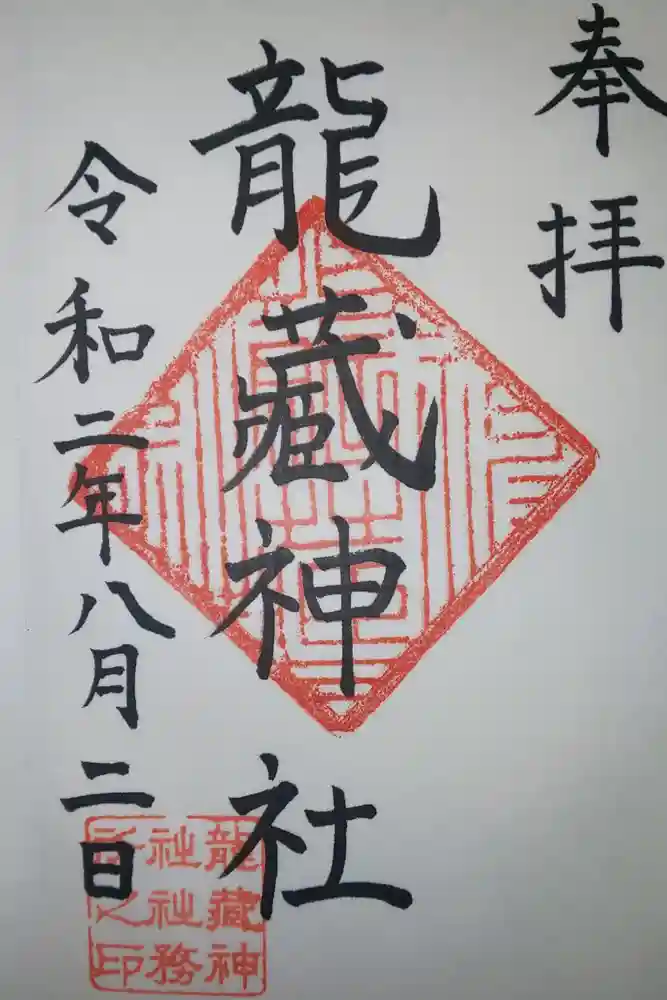 奉拝
龍藏神社
令和二年八月二日
龍藏神
社社務
之印